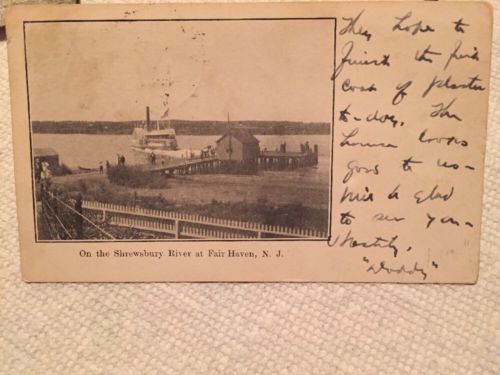 They hope to
finish the first
coat of plaster
to-day. The
house looks
good to us -
We'll be glad
to see you -
Hastily,
"Daddy"
On the Shrewsbury River at Fair Haven, N. J.